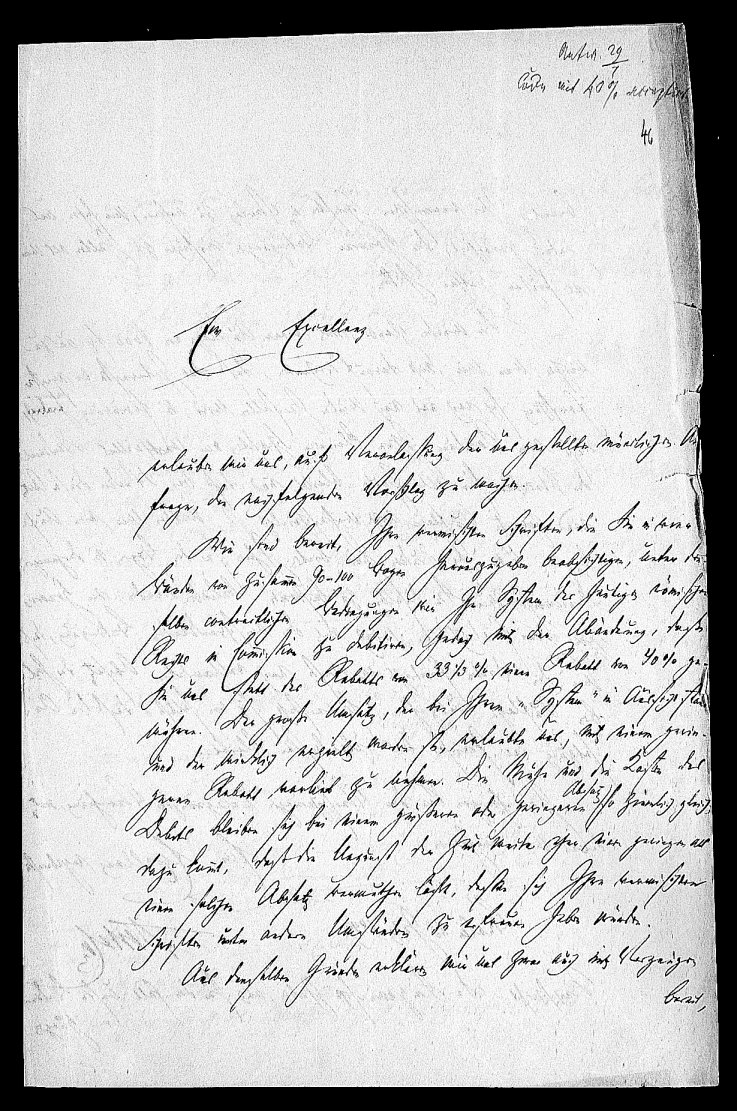 Antw. 29/7
mit 40 % acceptirt
46
Ew. Excellenz
erlauben wir uns, auf Veranlassung der uns gestellten mündlichen An
frage, den nachfolgenden Vorschlag zu machen.
Wir sind bereit, Ihre vermischten Schriften, die Sie in zwei
Bänden von zusammen 90-100 Bogen herauszugeben beabsichtigen, unter den
selben contractlichen Bedingungen wie Ihr System des heutigen römischen
Rechts in Commission zu debitiren, jedoch mit der Abänderung, dass
Sie uns statt des Rabatts von 33 1/3 % einen Rabatt von 40 % ge-
währen. Der große Umsatz, der bei Ihrem "System" in Aussicht stand
und der wirklich erzielt worden ist, erlaubte uns, mit einem gerin-
geren Rabatt vorlieb zu nehmen. Die Mühe und die Kosten des
Debits bleiben sich bei einem größeren oder geringeren Absatz so ziemlich gleich,
dazu kommt, dass die Ungunst der Zeit weit eher einen geringen als
einen solchen Absatz vermuthen lässt, dessen sich Ihre vermischten
Schriften unter andern Umständen zu erfreuen haben würden.
Aus denselben Gründen erklären wir uns zwar auch mit Vergnügen
bereit,